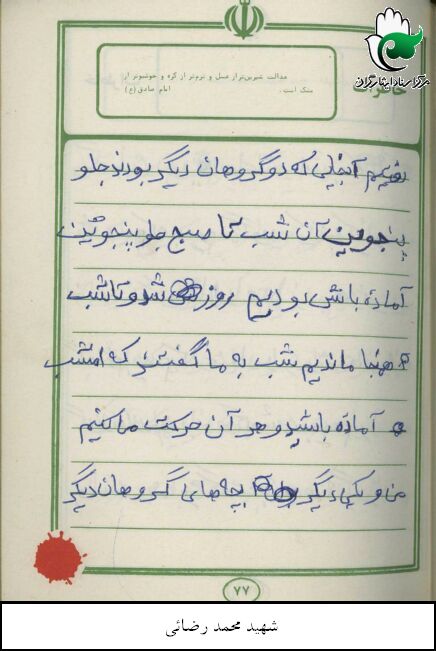 مرکز اسناد ایثارگران
خاطرات
عدالت شیرین‌تر از عسل و نرم‌تر از کره و خوشبوتر از
مشک است. امام صادق (ع)
رفتیم آنجایی که دو گروهان دیگر بودند جلو
پنجوین آن شب تا صبح جلو پنجوئین
آماده باش بودیم روز شد و تا شب
همنجا ماندیم شب به ما گفتند که امشب
آماده باشید و هر آن حرکت میکنیم
من و یکی دیگر بچه های گروهان دیگر
۷۷
شهید محمد رضائی